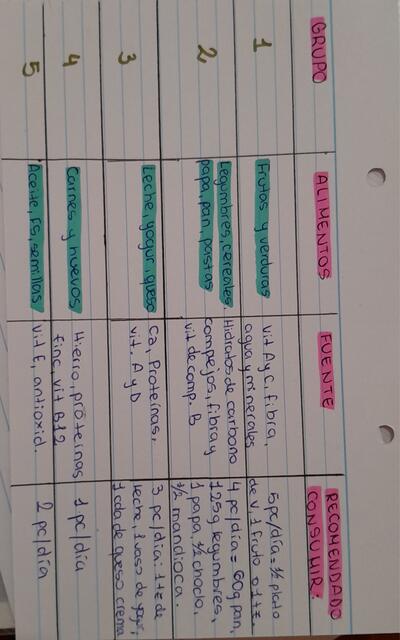 GRUPO
ALIMENTOS
FUENTE
RECOMENDADO
CONSUMIR.
1
Frutas y verduras
vit A y C, fibra,
agua y minerales
5pc/día = 1/2 plato
de v, 1 fruta o 1tz.
2
Legumbres, cereales,
papa, pan, pastas
Hidratos de carbono
compejos, fibra y
vit de comp. B
4 pc/día = 60g pan,
125g legumbres,
1 papa, 1/2 choclo,
1/2 mandioca.
3
Leche, yogur, queso
Ca, Proteínas,
vit. A y D
3 pc/día: 1tz de
leche, 1 vaso de yogur,
1 cda de queso crema
4
Carnes y huevos
Hierro, proteínas
finc, vit B12
1 pc/día
5
Aceite, FS, semillas
vit E, antioxid.
2 pc/día